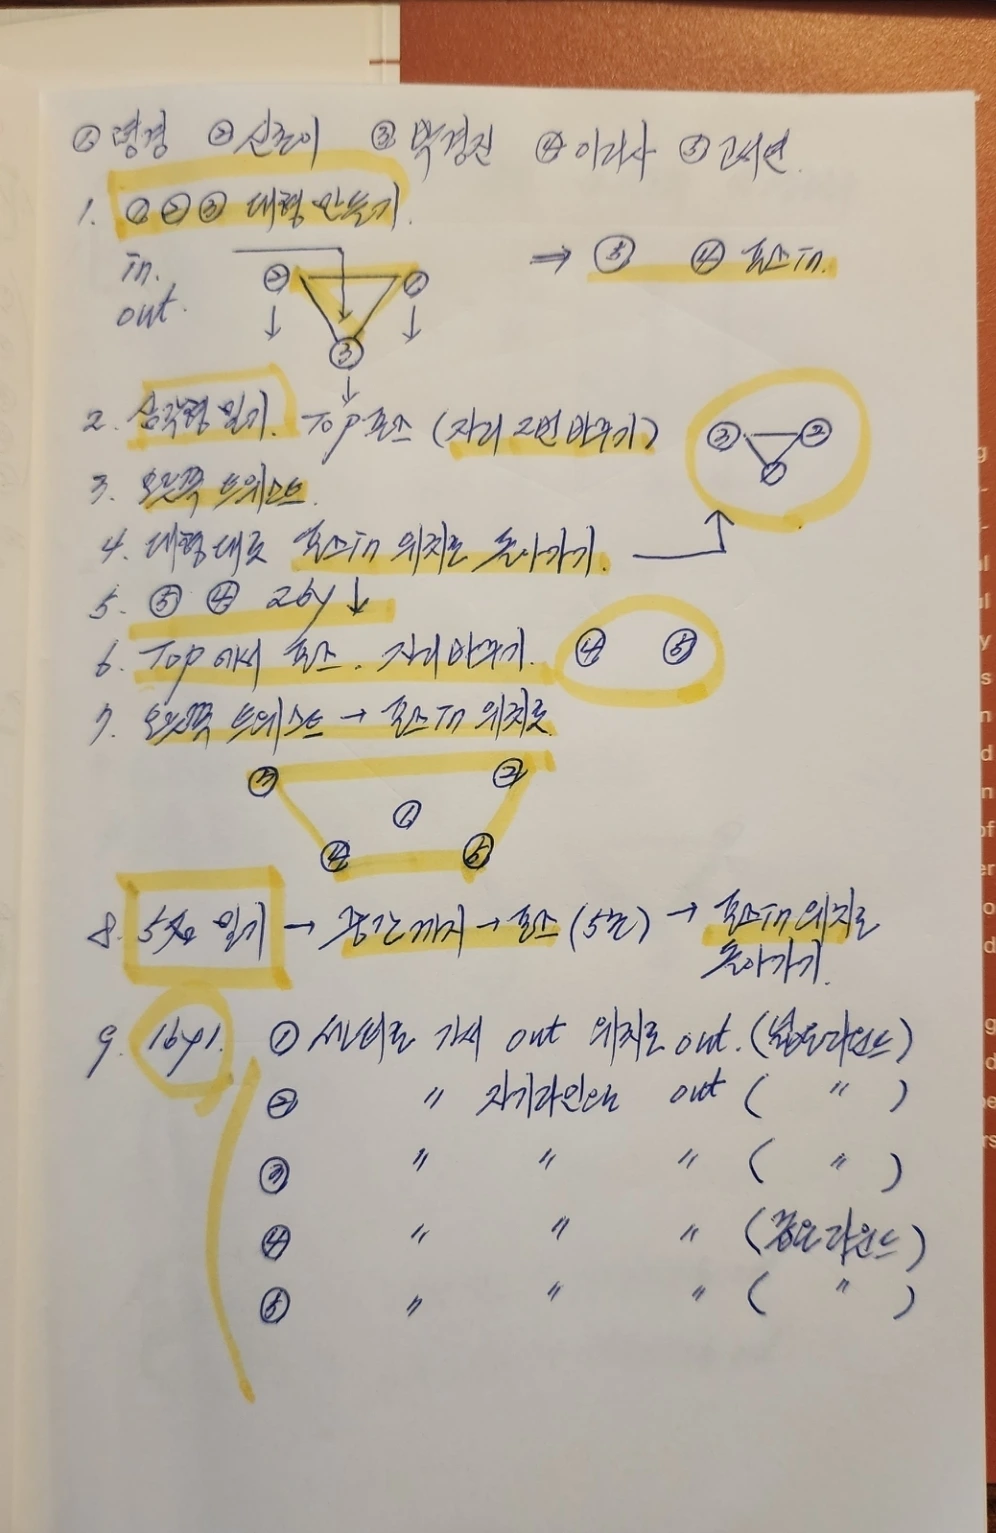 ① 명경 ② 신존이 ③ 박경진 ④ 이리사 ⑤ 고서연.
1. ① ② ③ 대형 만들기.
in.
out.
② ①
③
⇒ ⑤ ④ 포즈 in.
2. 삼각형 일기. Top 포즈 (자리 2번 바꾸기)
③ ②
①
3. 오른쪽 트위스트.
4. 대형대로 포즈 in 위치로 돌아가기.
5. ⑤ ④ 2by ↓
6. Top에서 포즈. 자리 바꾸기. ④ ⑤
7. 오른쪽 트위스트 → 포즈 in 위치로
③ ②
①
④ ⑤
8. 5人 일기 → 중간까지 → 포즈 (5초) → 포즈 in 위치로
돌아가기.
9. 1by1. ① 센터로 가서 out 위치로 out. (라운드)
② " 자기라인 out ( " )
③ " " " ( " )
④ " " " (라운드)
⑤ " " " ( " )